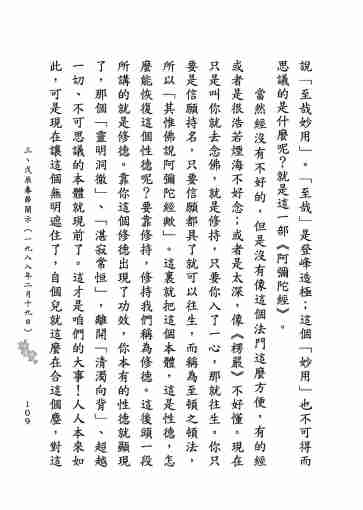 說「至哉妙用」。「至哉」是登峰造極；這個「妙用」也不可得而
思議的是什麼呢？就是這一部《阿彌陀經》。
當然經沒有不好的，但是沒有像這個法門這麼方便，有的經
或者是很浩若煙海不好念；或者是太深，像《楞嚴》不好懂。現在
只是叫你就去念佛，就是修持，只要你入了一心，那就往生。你只
要是信願持名，只要信願都具了就可以往生，而稱為至頓之頓法，
所以「其惟佛說阿彌陀經歟」。這裏就把這個本體，這是性德，怎
麼能恢復這個性德呢？要靠修持，修持我們稱為修德。這後頭一段
所講的就是修德。靠你這個修德出現了功效，你本有的性德就顯現
了，那個「靈明洞徹」、「湛寂常恒」，離開「清濁向背」、超越
一切、不可思議的本體就現前了。這才是咱們的大事！人人本來如
此，可是現在讓這個無明遮住了，自個兒就這麼在合這個塵，對這
三、戊辰春節開示（一九八八年二月十九日）
109